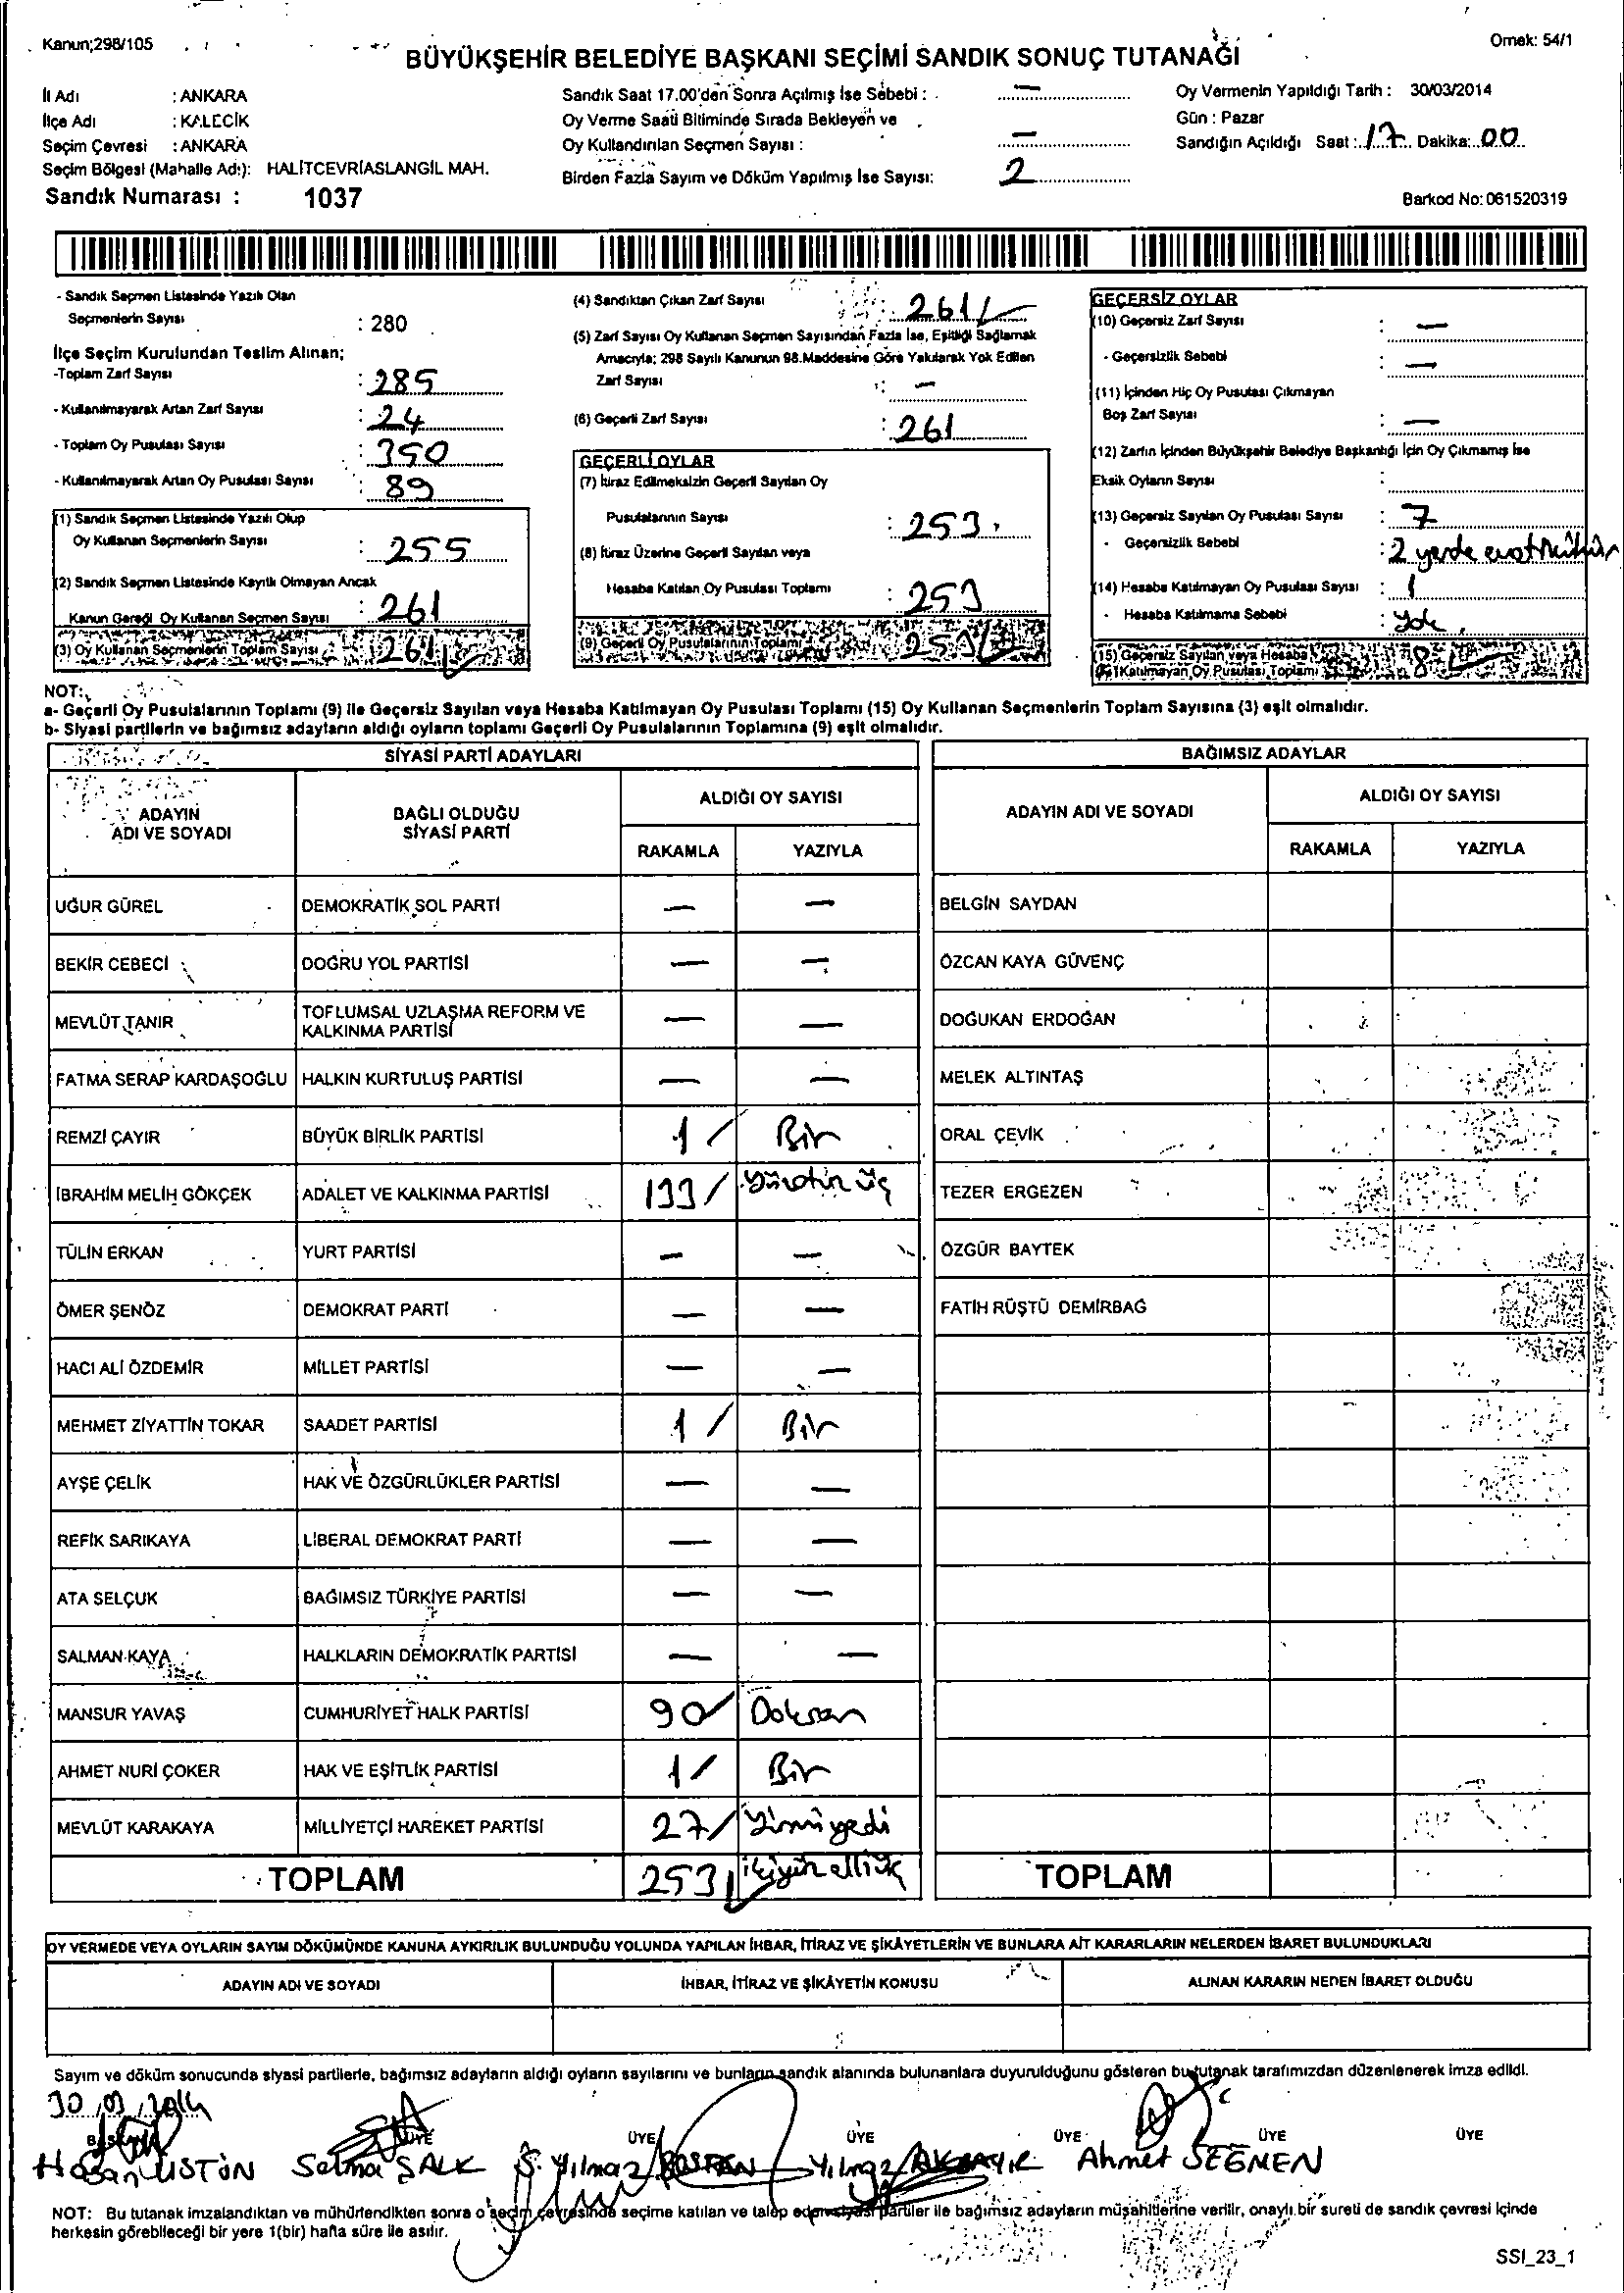 Kanun;298/105
BÜYÜKŞEHİR BELEDİYE BAŞKANI SEÇİMİ SANDIK SONUÇ TUTANAĞI
Örnek: 54/1
İl Adı : ANKARA
İlçe Adı : KALECİK
Seçim Çevresi : ANKARA
Seçim Bölgesi (Mahalle Adı): HALİTCEVRİASLANGİL MAH.
Sandık Numarası : 1037
Sandık Saat 17.00'den Sonra Açılmış İse Sebebi : —
Oy Verme Saati Bitiminde Sırada Bekleyen ve
Oy Kullandırılan Seçmen Sayısı : —
Birden Fazla Sayım ve Döküm Yapılmış İse Sayısı: 2
Oy Vermenin Yapıldığı Tarih : 30/03/2014
Gün : Pazar
Sandığın Açıldığı Saat : 17 Dakika: 00
Barkod No: 061520319
- Sandık Seçmen Listesinde Yazılı Olan
Seçmenlerin Sayısı : 280
İlçe Seçim Kurulundan Teslim Alınan;
-Toplam Zarf Sayısı : 285
- Kullanılmayarak Artan Zarf Sayısı : 24
- Toplam Oy Pusulası Sayısı : 350
- Kullanılmayarak Artan Oy Pusulası Sayısı : 89
(1) Sandık Seçmen Listesinde Yazılı Olup
Oy Kullanan Seçmenlerin Sayısı : 255
(2) Sandık Seçmen Listesinde Kayıtlı Olmayan Ancak
Kanun Gereği Oy Kullanan Seçmen Sayısı : 261
(3) Oy Kullanan Seçmenlerin Toplam Sayısı : 261
(4) Sandıktan Çıkan Zarf Sayısı : 261
(5) Zarf Sayısı Oy Kullanan Seçmen Sayısından Fazla İse, Eşitliği Sağlamak
Amacıyla; 298 Sayılı Kanunun 98.Maddesine Göre Yakılarak Yok Edilen
Zarf Sayısı : —
(6) Geçerli Zarf Sayısı : 261
GEÇERLİ OYLAR
(7) İtiraz Edilmeksizin Geçerli Sayılan Oy
Pusulalarının Sayısı : 253
(8) İtiraz Üzerine Geçerli Sayılan veya
Hesaba Katılan Oy Pusulası Toplamı : 253
(9) Geçerli Oy Pusulalarının Toplamı : 253
GEÇERSİZ OYLAR
(10) Geçersiz Zarf Sayısı : —
- Geçersizlik Sebebi : —
(11) İçinden Hiç Oy Pusulası Çıkmayan
Boş Zarf Sayısı : —
(12) Zarfın İçinden Büyükşehir Belediye Başkanlığı İçin Oy Çıkmamış İse
Eksik Oyların Sayısı :
(13) Geçersiz Sayılan Oy Pusulası Sayısı : 7
- Geçersizlik Sebebi : 2 yerde
(14) Hesaba Katılmayan Oy Pusulası Sayısı : 1
- Hesaba Katılmama Sebebi : Yok
(15) Geçersiz Sayılan veya Hesaba
Katılmayan Oy Pusulası Toplamı : 8
NOT:
a- Geçerli Oy Pusulalarının Toplamı (9) ile Geçersiz Sayılan veya Hesaba Katılmayan Oy Pusulası Toplamı (15) Oy Kullanan Seçmenlerin Toplam Sayısına (3) eşit olmalıdır.
b- Siyasi partilerin ve bağımsız adayların aldığı oyların toplamı Geçerli Oy Pusulalarının Toplamına (9) eşit olmalıdır.
SİYASİ PARTİ ADAYLARI
ADAYIN ADI VE SOYADI
BAĞLI OLDUĞU SİYASİ PARTİ
ALDIĞI OY SAYISI
RAKAMLA YAZIYLA
UĞUR GÜREL DEMOKRATİK SOL PARTİ — —
BEKİR CEBECİ DOĞRU YOL PARTİSİ — —
MEVLÜT TANIR TOPLUMSAL UZLAŞMA REFORM VE KALKINMA PARTİSİ — —
FATMA SERAP KARDAŞOĞLU HALKIN KURTULUŞ PARTİSİ — —
REMZİ ÇAYIR BÜYÜK BİRLİK PARTİSİ 1 / Bir
İBRAHİM MELİH GÖKÇEK ADALET VE KALKINMA PARTİSİ 133 / Yüzotuz üç
TÜLİN ERKAN YURT PARTİSİ — —
ÖMER ŞENÖZ DEMOKRAT PARTİ — —
HACI ALİ ÖZDEMİR MİLLET PARTİSİ — —
MEHMET ZİYATTİN TOKAR SAADET PARTİSİ 1 / Bir
AYŞE ÇELİK HAK VE ÖZGÜRLÜKLER PARTİSİ — —
REFİK SARIKAYA LİBERAL DEMOKRAT PARTİ — —
ATA SELÇUK BAĞIMSIZ TÜRKİYE PARTİSİ — —
SALMAN KAYA HALKLARIN DEMOKRATİK PARTİSİ — —
MANSUR YAVAŞ CUMHURİYET HALK PARTİSİ 90 / Doksan
AHMET NURİ ÇOKER HAK VE EŞİTLİK PARTİSİ 1 / Bir
MEVLÜT KARAKAYA MİLLİYETÇİ HAREKET PARTİSİ 27 / Yirmiyedi
TOPLAM 253 ikiyüz elliüç
BAĞIMSIZ ADAYLAR
ADAYIN ADI VE SOYADI
ALDIĞI OY SAYISI
RAKAMLA YAZIYLA
BELGİN SAYDAN
ÖZCAN KAYA GÜVENÇ
DOĞUKAN ERDOĞAN
MELEK ALTINTAŞ
ORAL ÇEVİK
TEZER ERGEZEN
ÖZGÜR BAYTEK
FATİH RÜŞTÜ DEMİRBAĞ
TOPLAM
OY VERMEDE VEYA OYLARIN SAYIM DÖKÜMÜNDE KANUNA AYKIRILIK BULUNDUĞU YOLUNDA YAPILAN İHBAR, İTİRAZ VE ŞİKÂYETLERİN VE BUNLARA AİT KARARLARIN NELERDEN İBARET BULUNDUKLARI
ADAYIN ADI VE SOYADI
İHBAR, İTİRAZ VE ŞİKÂYETİN KONUSU
ALINAN KARARIN NEDEN İBARET OLDUĞU
Sayım ve döküm sonucunda siyasi partilerle, bağımsız adayların aldığı oyların sayılarını ve bunların sandık alanında bulunanlara duyurulduğunu gösteren bu tutanak tarafımızdan düzenlenerek imza edildi.
30 / 03 / 2014
BAŞKAN ÜYE ÜYE ÜYE ÜYE ÜYE ÜYE
Hasan ÜSTÜN Selma ŞALK Ş. Yılmaz BOSTAN Yılmaz AKBAYIR Ahmet SEĞMEN
NOT: Bu tutanak imzalandıktan ve mühürlendikten sonra o seçim çevresinde seçime katılan ve talep eden siyasi partiler ile bağımsız adayların müşahitlerine verilir, onaylı bir sureti de sandık çevresi içinde
herkesin görebileceği bir yere 1(bir) hafta süre ile asılır.
SSI_23_1